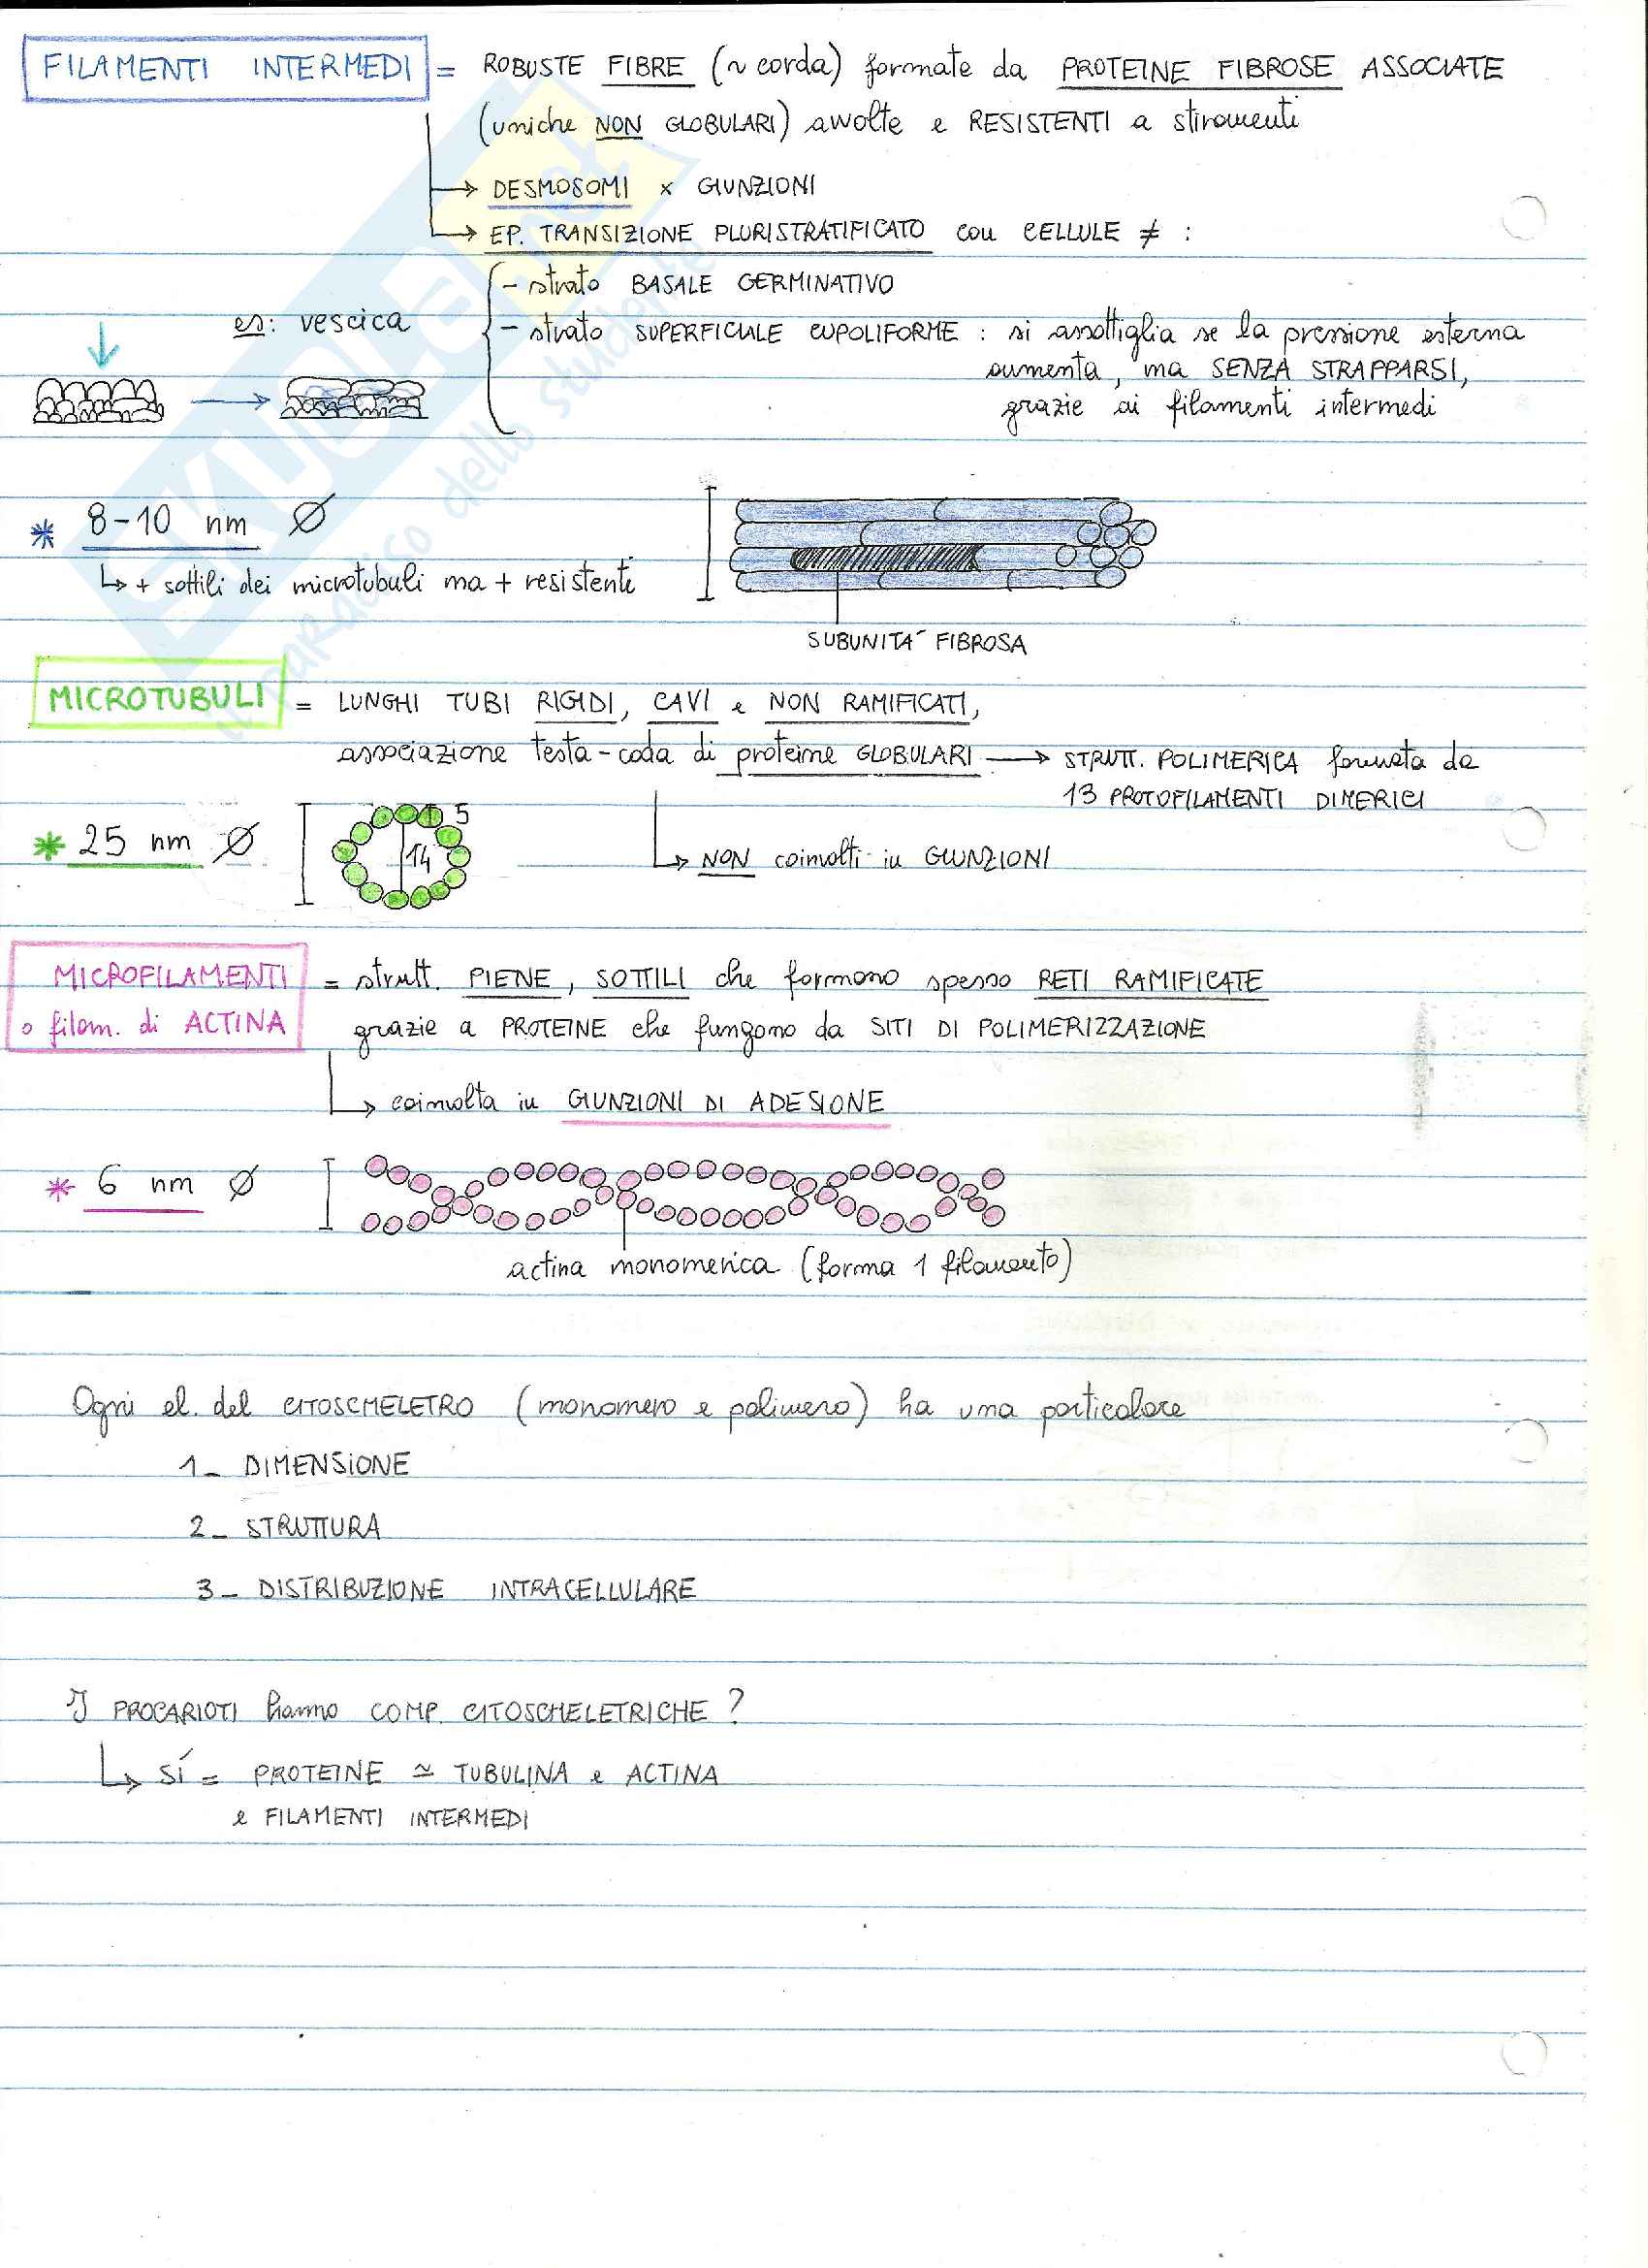 FILAMENTI INTERMEDI = ROBUSTE FIBRE (~ corda) formate da PROTEINE FIBROSE ASSOCIATE
(uniche NON GLOBULARI) avvolte e RESISTENTI a stiramenti
→ DESMOSOMI x GIUNZIONI
→ EP. TRANSIZIONE PLURISTRATIFICATO con CELLULE ≠ :
- strato BASALE GERMINATIVO
es: vescica
- strato SUPERFICIALE CUPOLIFORME : si assottiglia se la pressione esterna
aumenta, ma SENZA STRAPPARSI,
grazie ai filamenti intermedi
* 8-10 nm Ø
↳ + sottili dei microtubuli ma + resistente
SUBUNITA' FIBROSA
MICROTUBULI = LUNGHI TUBI RIGIDI, CAVI e NON RAMIFICATI,
associazione testa-coda di proteine GLOBULARI → STRUTT. POLIMERICA formata da
13 PROTOFILAMENTI DIMERICI
* 25 nm Ø
5
14
↳ NON coinvolti in GIUNZIONI
MICROFILAMENTI = strutt. PIENE, SOTTILI che formano spesso RETI RAMIFICATE
o filam. di ACTINA grazie a PROTEINE che fungono da SITI DI POLIMERIZZAZIONE
↳ coinvolta in GIUNZIONI DI ADESIONE
* 6 nm Ø
actina monomerica (forma 1 filamento)
Ogni el. del CITOSCHELETRO (monomero e polimero) ha una particolare
1_ DIMENSIONE
2_ STRUTTURA
3_ DISTRIBUZIONE INTRACELLULARE
I PROCARIOTI hanno COMP. CITOSCHELETRICHE ?
↳ SÍ = PROTEINE ≃ TUBULINA e ACTINA
e FILAMENTI INTERMEDI
SKUOLA.net
il paradiso dello studente